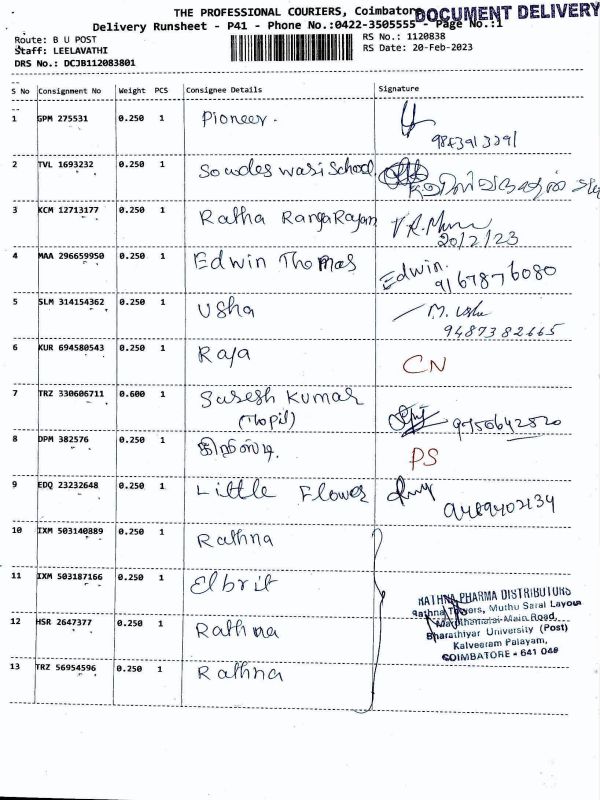 THE PROFESSIONAL COURIERS, Coimbatore
DOCUMENT DELIVERY
Delivery Runsheet - P41 - Phone No.:0422-3505555 - Page No.:1
Route: B U POST
RS No.: 1120838
Staff: LEELAVATHI
RS Date: 20-Feb-2023
DRS No.: DCJB112083801
S No Consignment No Weight PCS Consignee Details Signature
1 GPM 275531 0.250 1 Pioneer.
2 TVL 1693232 0.250 1 School
3 KCM 12713177 0.250 1 Ratha RangaRajan
20/2/23
4 MAA 296659950 0.250 1 Edwin Thomas Edwin.
9167876080
5 SLM 314154362 0.250 1 Usha M. Usha
6 KUR 694580543 0.250 1 Raja CN
7 TRZ 330606711 0.600 1 Suresh Kumar
(Thopil)
8 DPM 382576 0.250 1 PS
9 EDQ 23232648 0.250 1 Little Flower
10 IXM 503140889 0.250 1 Rathna
11 IXM 503187166 0.250 1 Elbrit
12 HSR 2647377 0.250 1 Rathna
13 TRZ 56954596 0.250 1 Rathna
RATHNA PHARMA DISTRIBUTORS
Rathna Towers, Muthu Saral Layout
Maruthamalai Main Road,
Bharathiyar University (Post)
Kalveeram Palayam,
COIMBATORE - 641 046